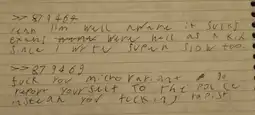 >> 879464
yeah I'm well aware it sucks
exams were hell as a kid
since I write super slow too
>> 879469
fuck you micro rapist go
report your self to the police
instead you fucking rapist